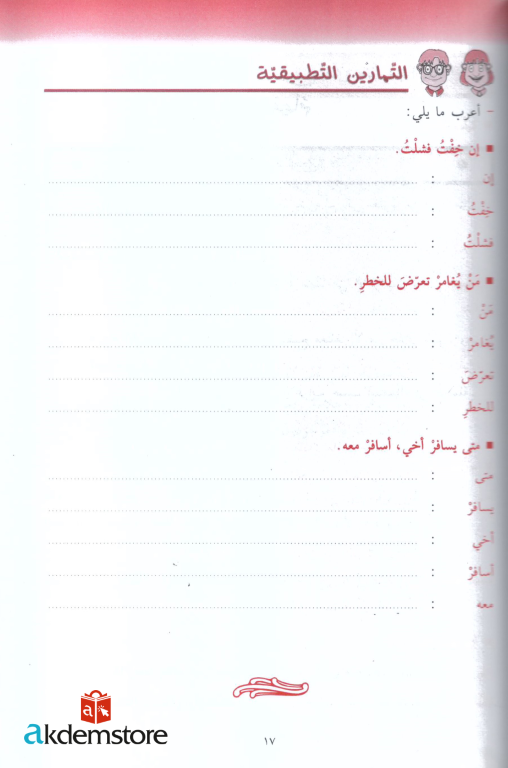 التّمارين التّطبيقيّة
- أعرب ما يلي:
■ إن خِفْتُ فشلْتُ.
إن :
خِفْتُ :
فشلْتُ :
■ مَنْ يُغامرْ تعرّضَ للخطرِ.
مَنْ :
يُغامرْ :
تعرّضَ :
للخطرِ :
■ متى يسافرْ أخي، أسافرْ معه.
متى :
يسافرْ :
أخي :
أسافرْ :
معه :
akdemstore
١٧